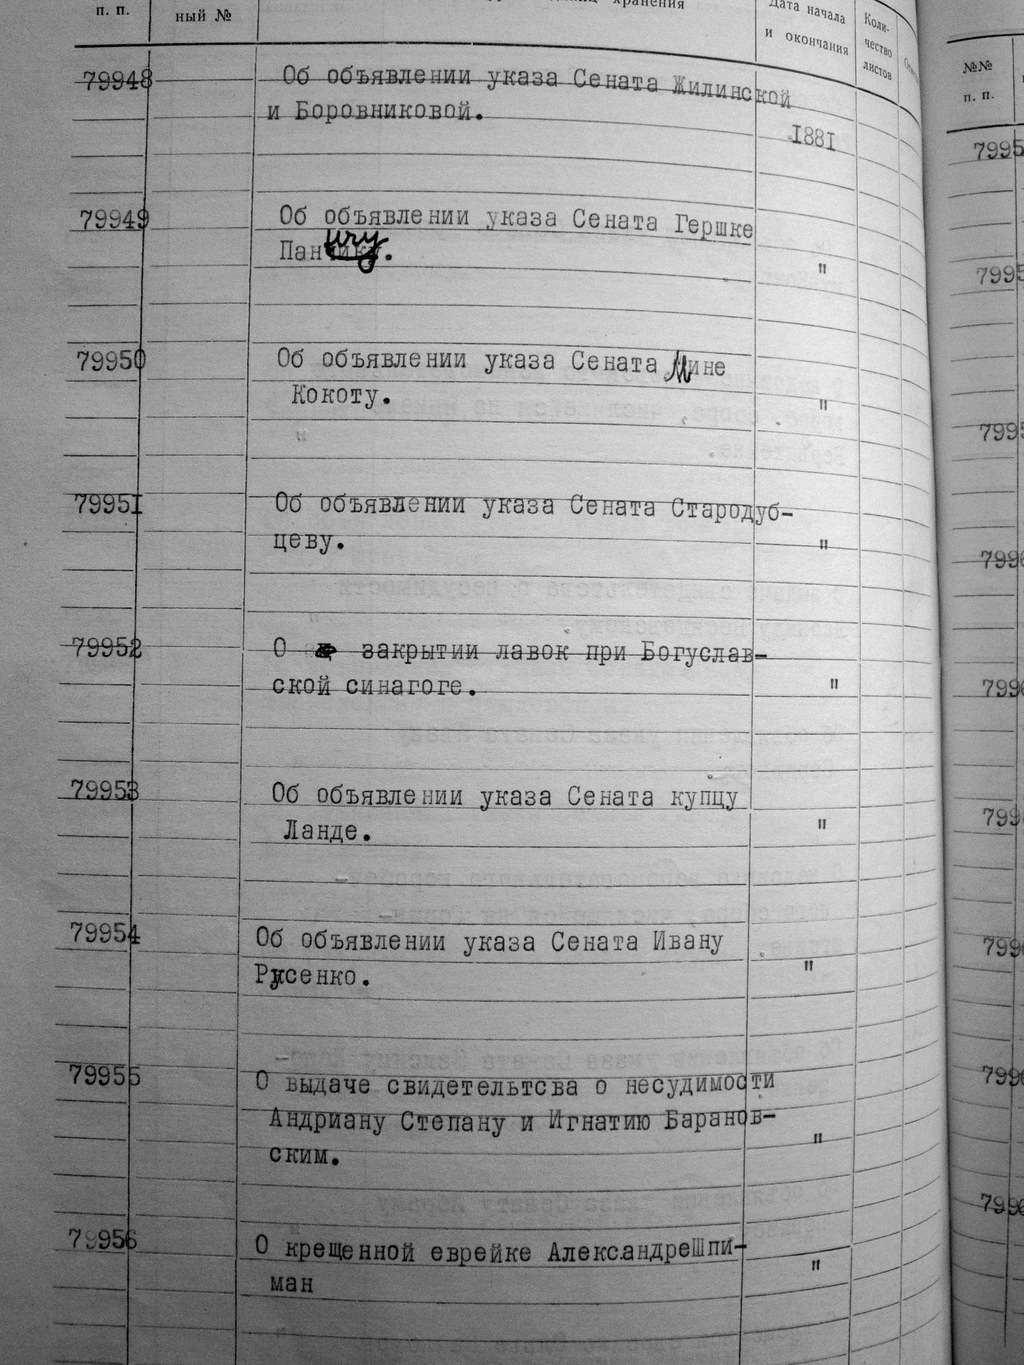 п. п.
ный №
хранения
Дата начала
и окончания
Коли-
чество
листов
79948
Об объявлении указа Сената Жилинской
и Боровниковой.
1881
79949
Об объявлении указа Сената Гершке
Панчичу.
"
79950
Об объявлении указа Сената Мине
Кокоту.
"
79951
Об объявлении указа Сената Стародуб-
цеву.
"
79952
О закрытии лавок при Богуслав-
ской синагоге.
"
79953
Об объявлении указа Сената купцу
Ланде.
"
79954
Об объявлении указа Сената Ивану
Русенко.
"
79955
О выдаче свидетельтсва о несудимости
Андриану Степану и Игнатию Баранов-
ским.
"
79956
О крещенной еврейке АлександреШпи-
ман
"
№№
п. п.